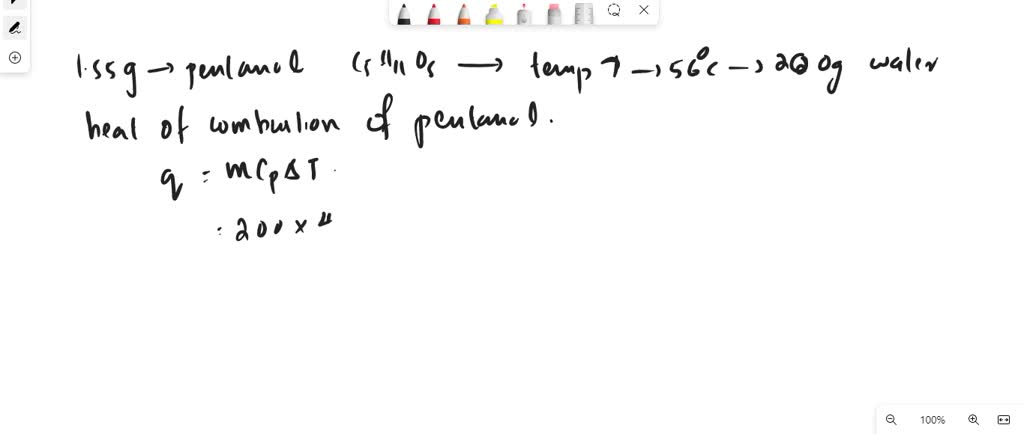 1.55 g → pentanol C5H11O5 → temp ↑ → 56°C → 200g water
heat of combustion of pentanol.
q = mCpΔT.
= 200 × 4
100%